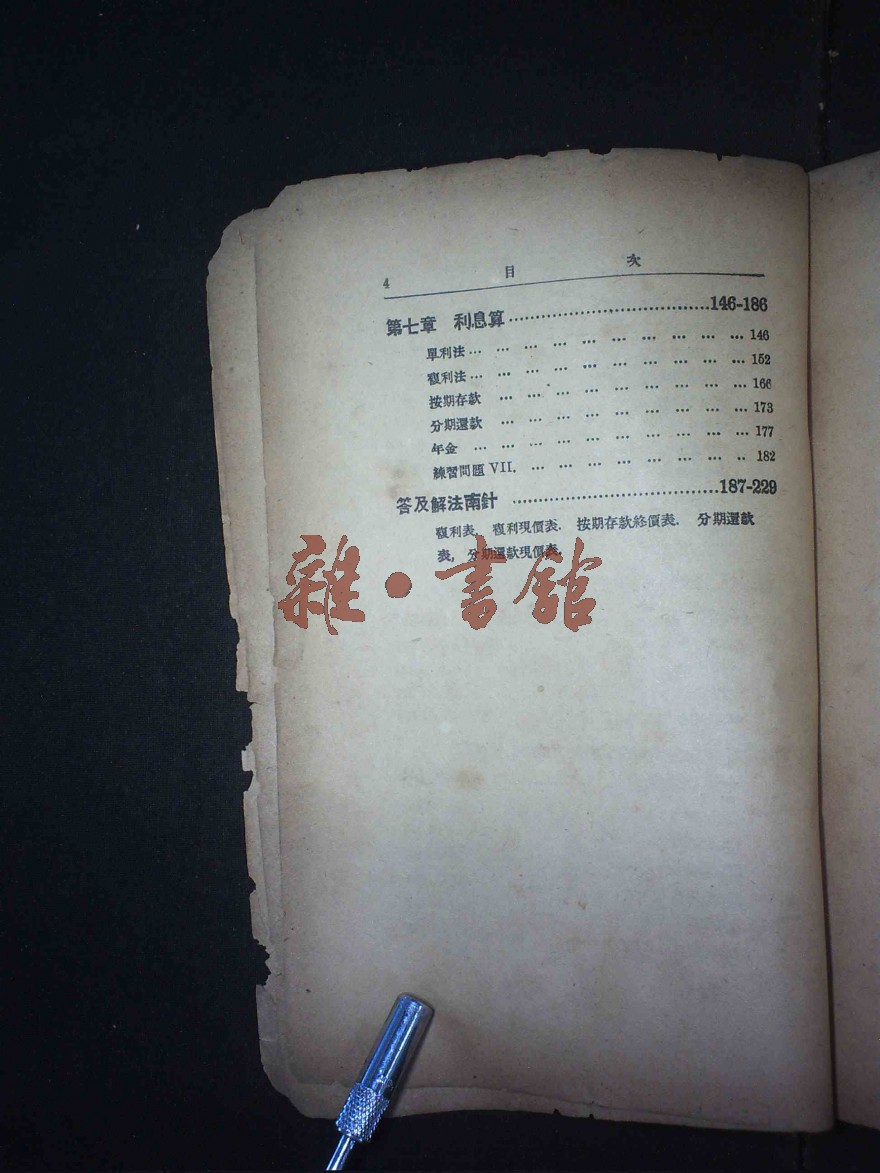 4 目 次
第七章 利息算……………………………146-186
單利法… … … … … … … … … … 146
複利法… … … … … … … … … … 152
按期存款 … … … … … … … … … 166
分期還款 … … … … … … … … … 173
年金 … … … … … … … … … … 177
練習問題 VII. … … … … … … … .. 182
答及解法南針 ……………………………187-229
複利表. 複利現價表. 按期存款終價表. 分期還款
表, 分期還款現價表.
雜·書館